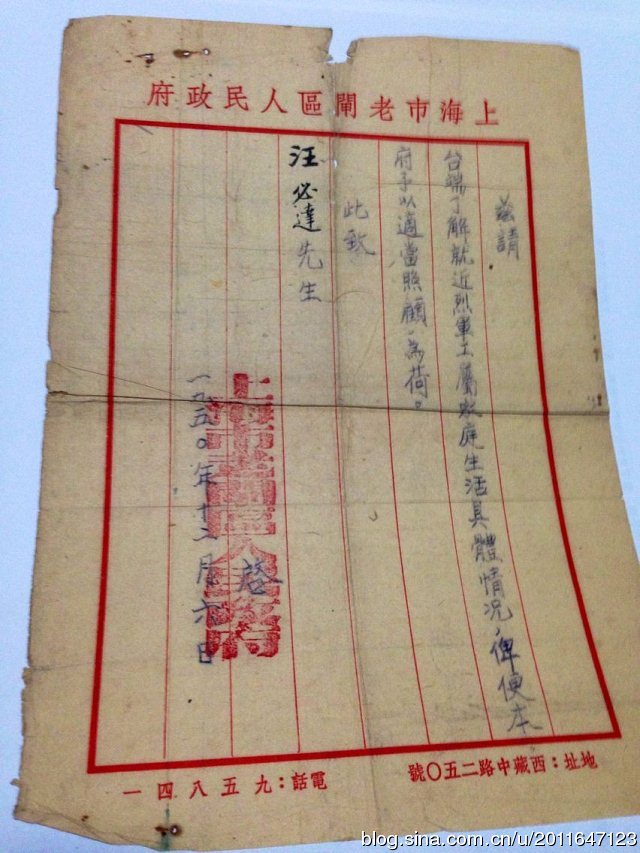 上海市老閘區人民政府
茲請
台端了解就近烈軍工屬家庭生活具體情况，俾便本
府予以適當照顧，為荷。
此致
汪必達先生
上海市老閘區人民政府
啓
一九五〇年十二月六日
地址：西藏中路二五〇號
電話：九五八四一
blog.sina.com.cn/u/2011647123